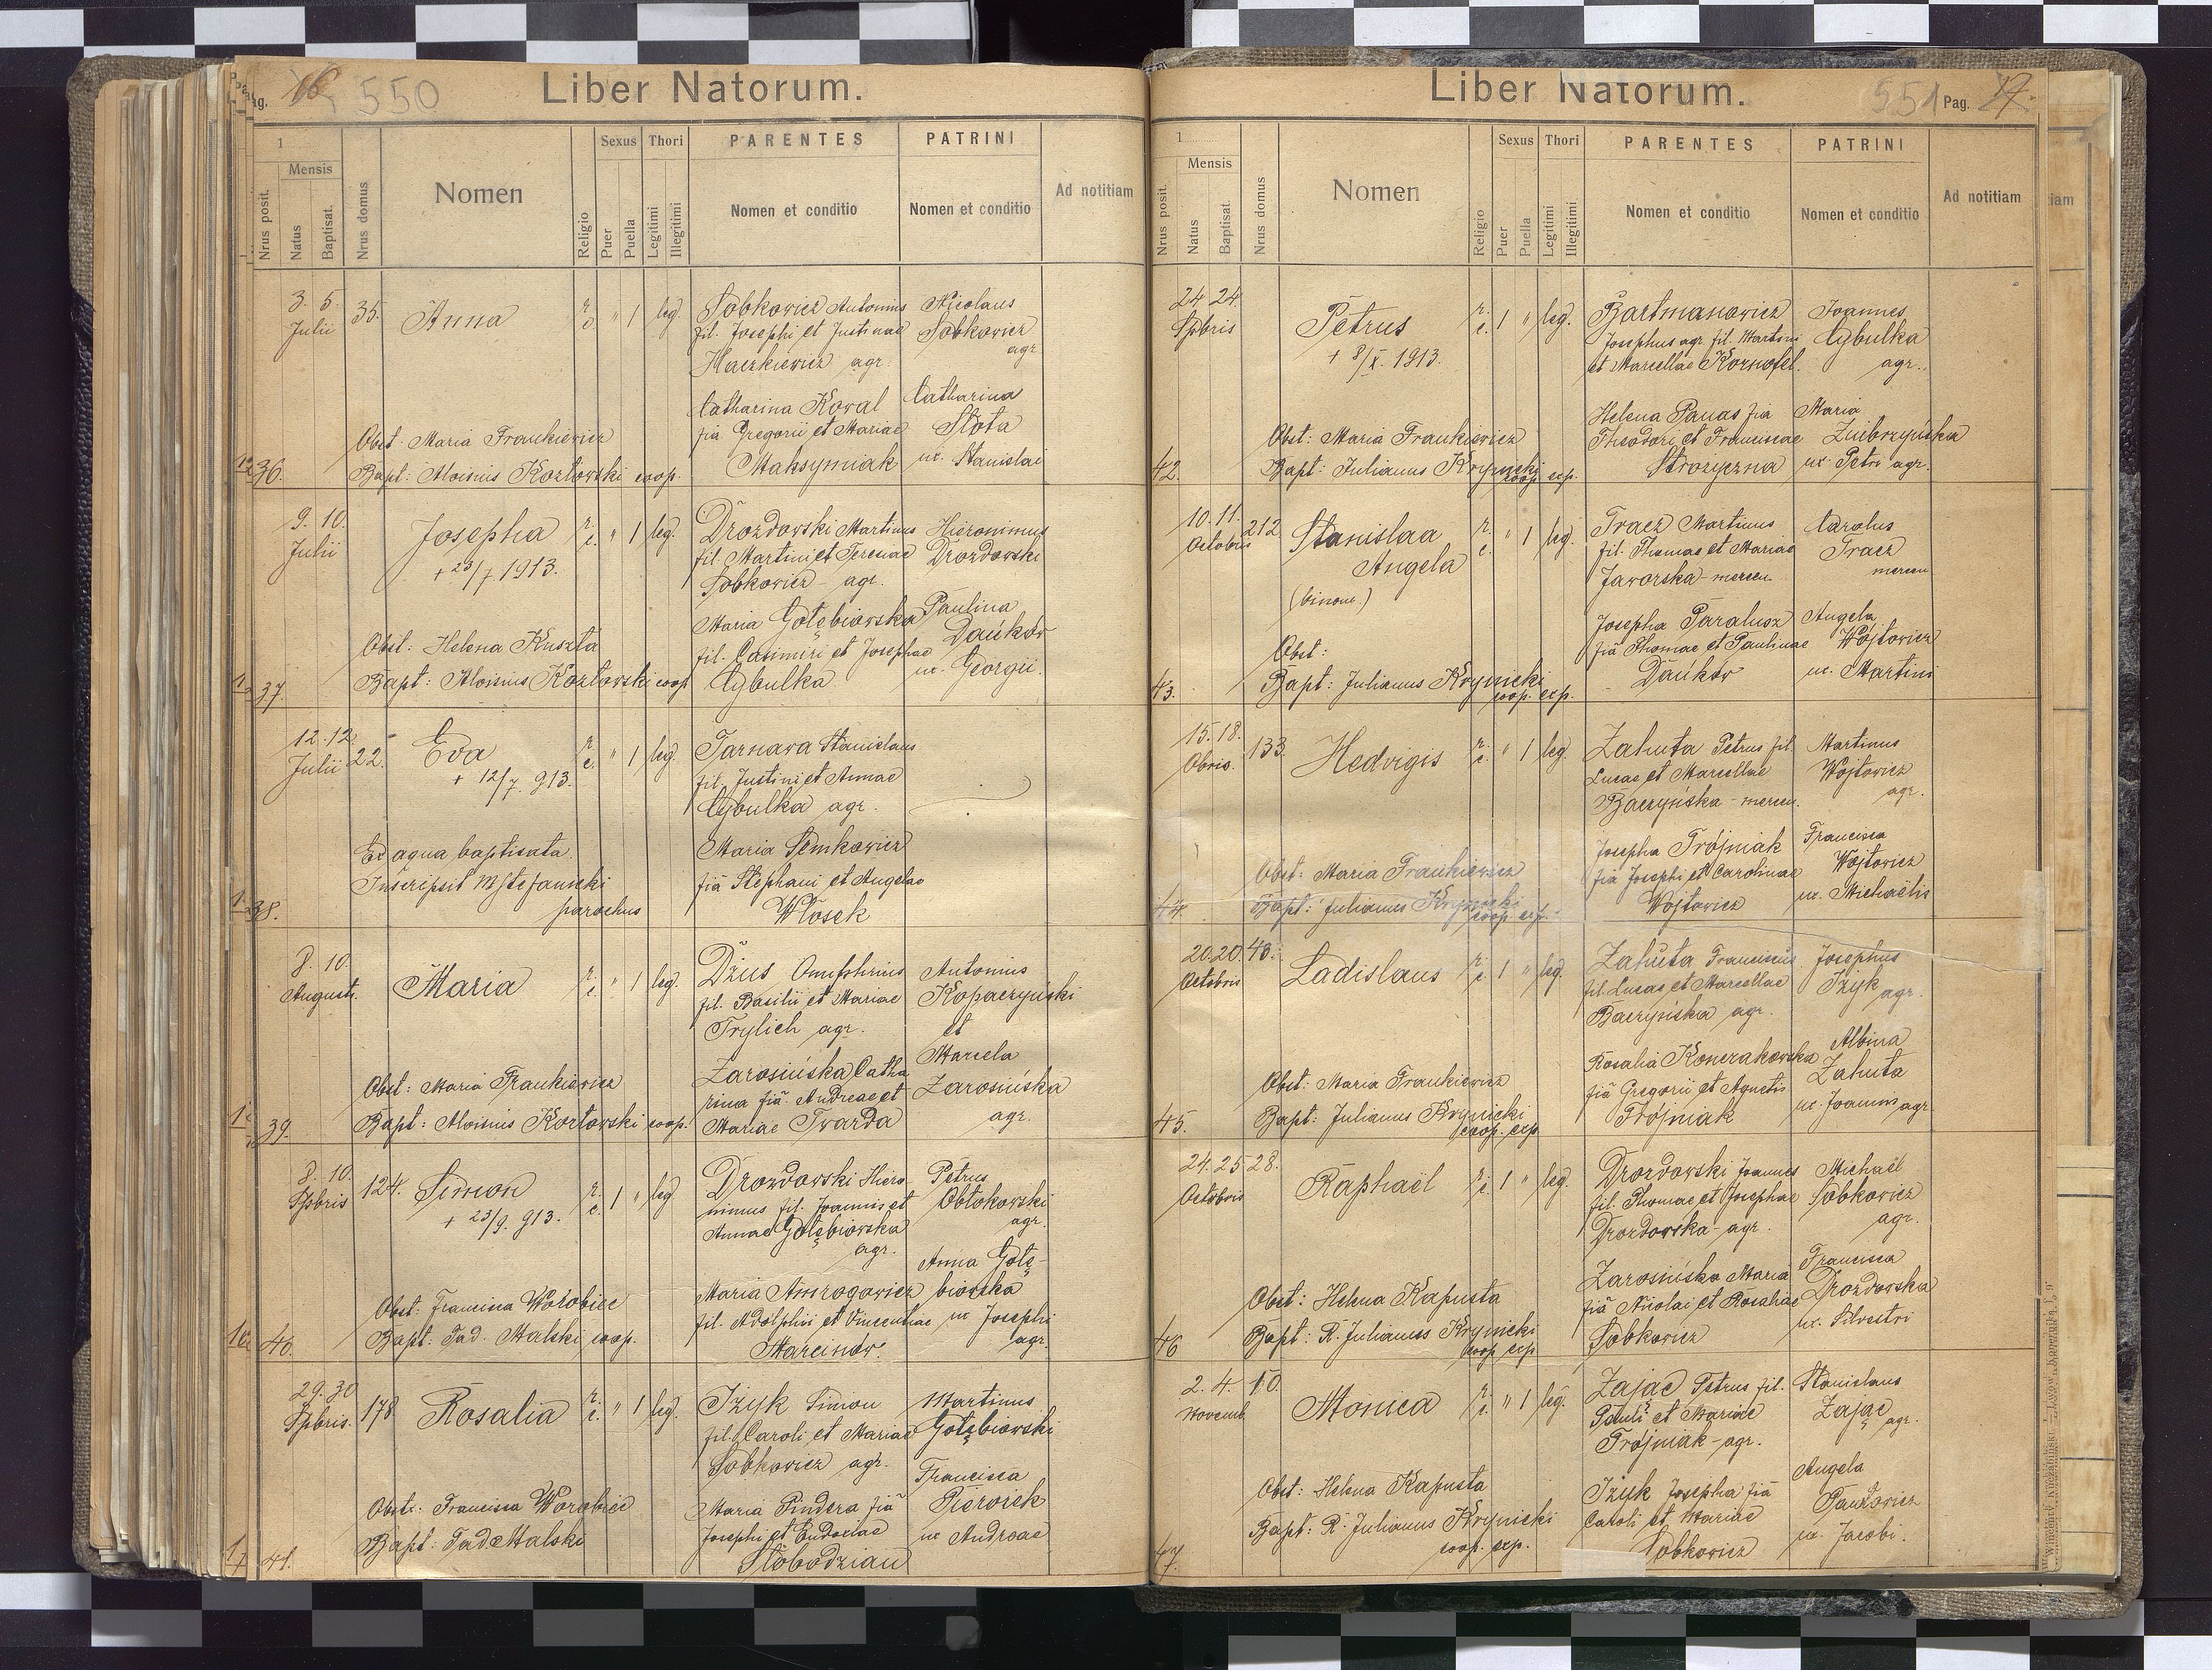 Pag. 16 550
Liber Natorum.
1
Mensis
Nrus posit.
Natus
Baptisat.
Nrus domus
Nomen
Religio
Sexus
Puer
Puella
Thori
Legitimi
Illegitimi
PARENTES
Nomen et conditio
PATRINI
Nomen et conditio
Ad notitiam
36.
3. 5.
Julii
35.
Anna
r. c. " 1 leg.
Sobkowicz Antonius
fil. Josephi et Justinae
Haczkiewicz agr.
Catharina Kowal
fia Gregorii et Mariae
Maksymiak
Nicolaus
Sobkowicz
agr
Catharina
Słota
ux. Stanislai
Obst. Maria Frankiewicz
Bapt: Aloisius Kozłowski coop.
37.
9. 10.
Julii
Josepha
+ 23/7 1913.
r. c. " 1 leg.
Drozdowski Martinus
fil. Martini et Teresiae
Sobkowicz - agr.
Maria Gołębiowska
fil. Casimiri et Josephae
Cybulka
Hieronimus
Drozdowski
Paulina
Dańków
ux. Georgii
Obst: Helena Kuszta
Bapt: Aloisius Kozłowski coop
38.
12. 12
Julii
22.
Eva
+ 12/7. 913.
r. c. " 1 leg.
Tarnawa Stanislaus
fil. Justini et Annae
Cybulka agr.
Maria Semkowicz
fia Stephani et Angelae
Włosek
Ex aqua baptisata.
Inscripsit MStefanicki
parochus
39.
8. 10.
Augusti.
Maria
r. c. " 1 leg.
Dżus Onufshrius
fil. Basilii et Mariae
Trylich agr.
Zarosińska Catha
rina fia Andreae et
Mariae Twarda
Antonius
Kopaczyński
et
Marcela
Zarosińska
agr.
Obst: Maria Frankiewicz
Bapt: Aloisius Kozłowski coop.
40.
8. 10.
7bris
124.
Simon
+ 23/9. 913.
r. c. 1 " leg
Drozdowski Hiero-
nimus fil. Joannis et
Annae Gołębiowska
agr.
Maria Amrogowicz
fil. Adolphii et Vincentiae
Marcinów.
Petrus
Obłokowski
agr.
Anna Gołę-
biowska
ux Josephi
agr.
Obst: Francisca Worobiec
Bapt: Tad. Malski coop.
41.
29. 30
7bris.
178
Rosalia
r. c. " 1 leg.
Iżyk Simon
fil. Caroli et Mariae
Sobkowicz agr.
Maria Pindera fia
Josephi et Eudociae
Słobodzian
Martinus
Gołębiowski
Francisca
Pierosiek
ux Andreae
Obstr. Francisca Worobiec
Bapt: Tad Malski
Liber Natorum.
551 Pag. 17
1
Mensis
Nrus posit.
Natus
Baptisat.
Nrus domus
Nomen
Religio
Sexus
Puer
Puella
Thori
Legitimi
Illegitimi
PARENTES
Nomen et conditio
PATRINI
Nomen et conditio
Ad notitiam
42.
24 24.
7bris
Petrus
+ 8/X. 1913.
r. c. 1 " leg.
Bartmanowicz
Josephus agr. fil. Martini
et Marcellae Kornofel.
Helena Panas fia
Theodori et Franciscae
Strożyczna
Joannes
Cybulka
agr.
Maria
Zubrzyńska
ux. Petri agr.
Obst: Maria Frankiewicz
Bapt: Julianus Krynicki
coop. exp.
43.
10. 11.
Octobris
212
Stanislaa
Angela
(binom.)
r. c. " 1 leg.
Tracz Martinus
fil. Thomae et Mariae
Jaworska - mercen.
Josepha Paralusz
fia Thomae et Paulinae
Dańków
Carolus
Tracz
mercen
Angela
Wójtowicz
ux. Martini
Obst:
Bapt: Julianus Krynicki
coop. exp.
44.
15. 18.
Obris.
133.
Hedvigis
r. c. " 1 leg.
Zahuta Petrus fil.
Lucae et Marcellae
Baczyńska - mercen.
Josepha Trójniak
fia Josephi et Carolinae
Wójtowicz
Martinus
Wójtowicz
agr.
Francisca
Wójtowicz
ux. Michaëlis
Obst: Maria Frankiewicz
Bapt: Julianus Krynicki
coop. exp.
45.
20. 20.
Octobris
40.
Ladislaus
r. c. 1 " leg
Zahuta Franciscus
fil. Lucae et Marcellae
Baczyńska agr.
Rosalia Konczakowska
fia Gregorii et Agnetis
Trójniak
Josephus
Iżyk agr.
Albina
Zahuta
ux. Joannis agr.
Obst: Maria Frankiewicz
Bapt: Julianus Krynicki
coop. exp
46
24. 25
Octobris
28.
Raphaël
r. c. 1 " leg.
Drozdowski Joannes
fil. Thomae et Josephae
Drozdowska - agr.
Zarosińska Maria
fia Nicolai et Rosaliae
Sobkowicz
Michaël
Sobkowicz
agr.
Francisca
Drozdowska
ux. Silvestri
Obst: Helena Kapusta
Bapt: R. Julianus Krynicki
coop exp
47.
2. 4.
Novemb.
10.
Monica
r. c. " 1 leg.
Zając Petrus fil.
Pauli et Mariae
Trójniak - agr.
Iżyk Josepha fia
Caroli et Mariae
Sobkowicz
Stanislaus
Zając agr.
Angela
Pawłowicz
ux. Jacobi.
Obst: Helena Kapusta
Bapt: R. Julianus Krynicki
coop. exp.